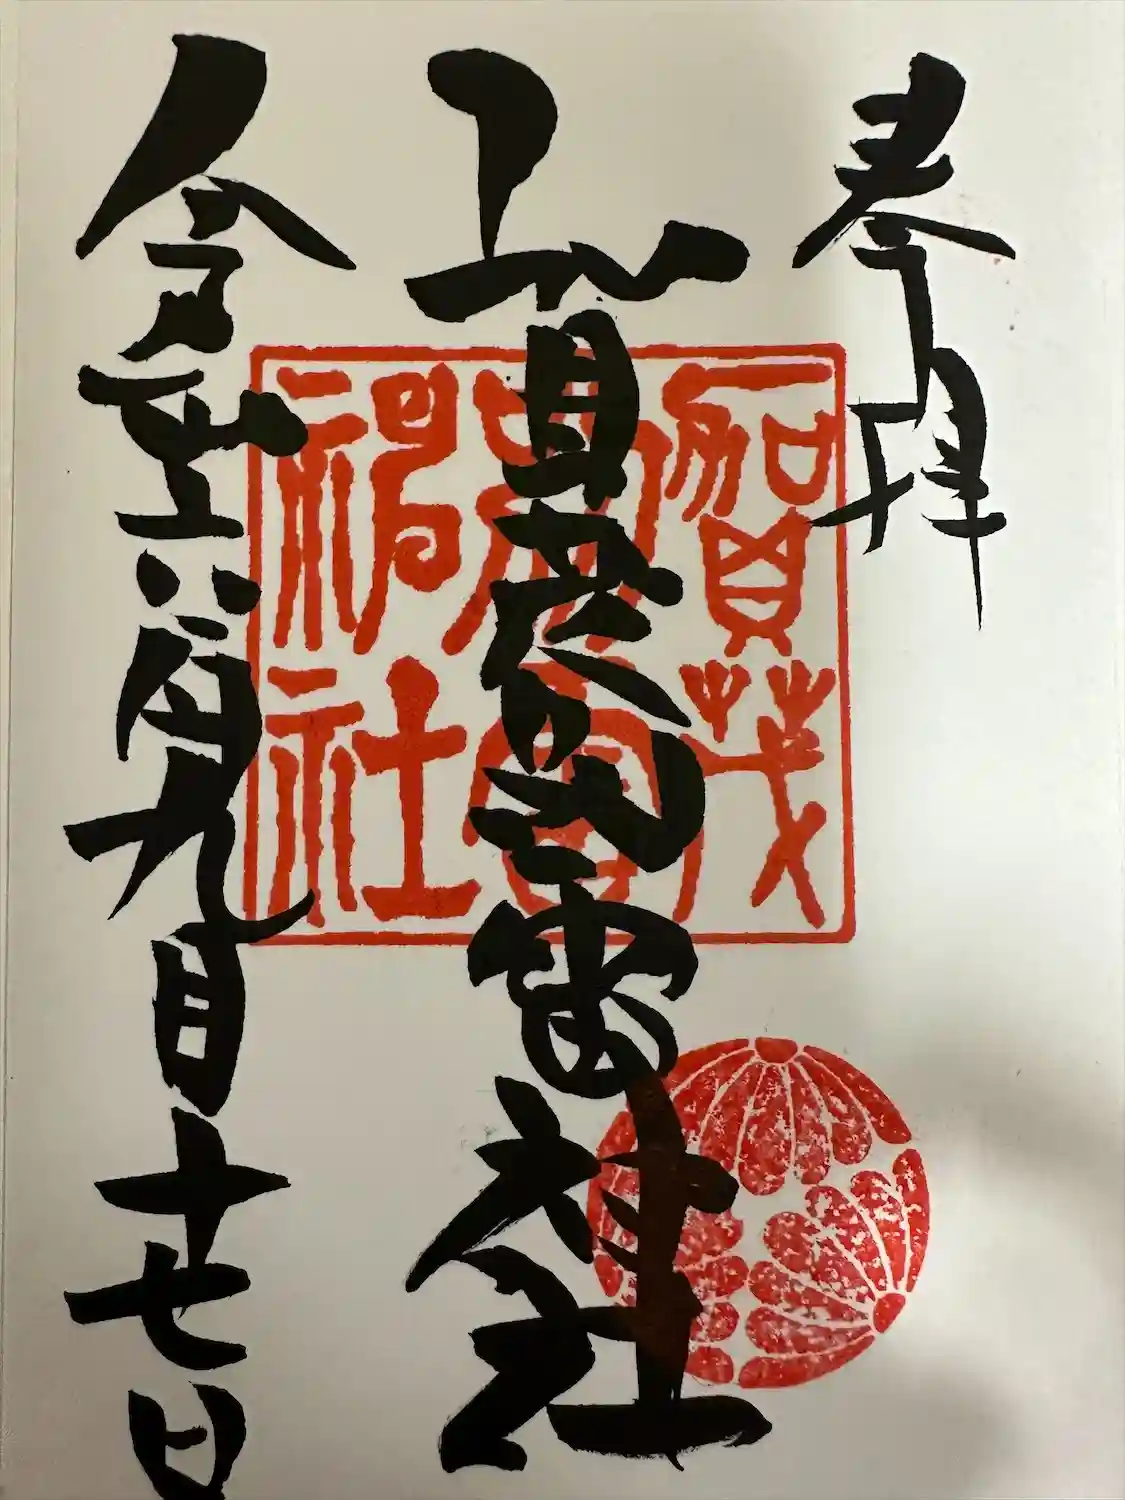 奉拝
賀茂別雷神社
令九月十七日
賀茂
別雷
神社